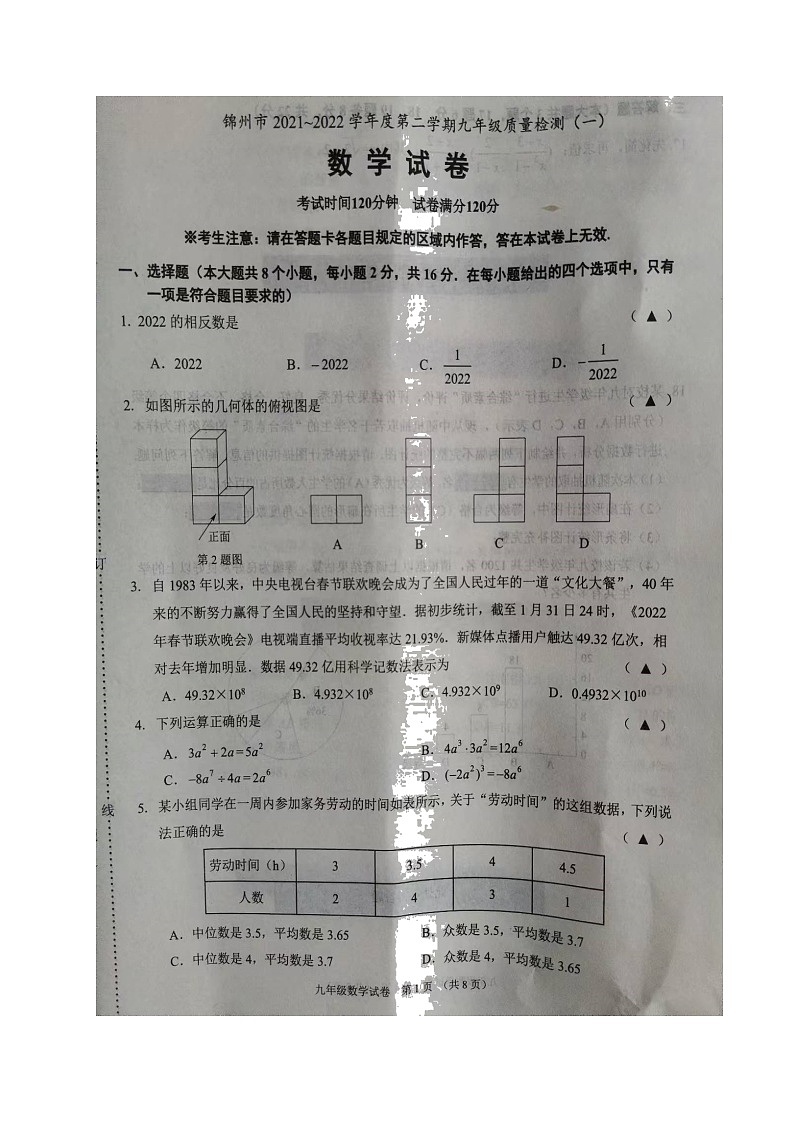 锦州市 2021~2022 学年度第二学期九年级质量检测（一）
数 学 试 卷
考试时间120分钟 试卷满分120分
※考生注意：请在答题卡各题目规定的区域内作答，答在本试卷上无效.
一、选择题（本大题共 8 个小题，每小题 2 分，共 16 分．在每小题给出的四个选项中，只有
一项是符合题目要求的）
1. 2022 的相反数是 （ ▲ ）
A．2022 B．－2022 C．1/2022 D．－1/2022
2. 如图所示的几何体的俯视图是 （ ▲ ）
正面
第 2 题图
A B C D
订
3. 自 1983 年以来，中央电视台春节联欢晚会成为了全国人民过年的一道“文化大餐”，40 年
来的不断努力赢得了全国人民的坚持和守望．据初步统计，截至 1 月 31 日 24 时，《2022
年春节联欢晚会》电视端直播平均收视率达 21.93%．新媒体点播用户触达 49.32 亿次，相
对去年增加明显．数据 49.32 亿用科学记数法表示为 （ ▲ ）
A．49.32×10⁸ B．4.932×10⁸ C．4.932×10⁹ D．0.4932×10¹⁰
4. 下列运算正确的是 （ ▲ ）
A．3a²+2a=5a² B．4a³·3a²=12a⁶
C．－8a⁷÷4a=2a⁶ D．(－2a²)³=－8a⁶
线
5. 某小组同学在一周内参加家务劳动的时间如表所示，关于“劳动时间”的这组数据，下列说
法正确的是 （ ▲ ）
劳动时间（h） 3 3.5 4 4.5
人数 2 4 3 1
A．中位数是 3.5，平均数是 3.65 B．众数是 3.5，平均数是 3.7
C．中位数是 4，平均数是 3.7 D．众数是 4，平均数是 3.65
九年级数学试卷 第 1 页 （共 8 页）